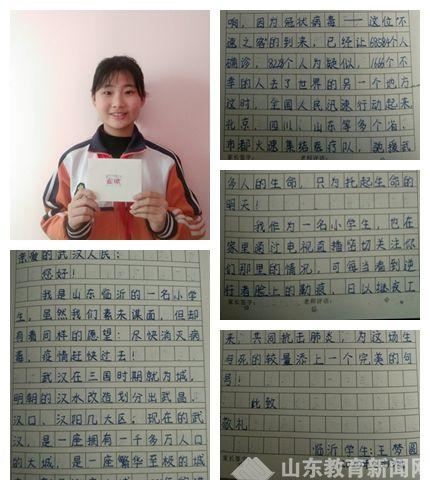 亲爱的武汉人民:
您好!
我是山东临沂的一名小学
生,虽然我们素未谋面,但却
有着同样的愿望:尽快消灭病
毒,疫情赶快过去!
武汉在三国时期就为城,
明朝的汉水改造划分出武昌、
汉口、汉阳几大区。现在的武
汉,是一座拥有一千多万人口
的大城,是一座繁华至极的城
啊,因为冠状病毒——这位不
速之客的到来,已经让68584个人
确诊,8228个人为疑似,1666个不
幸的人去了世界的另一个地方
这时,全国人民迅速行动起来
北京、四川、山东等多个省、
市都火速集结医疗队,驰援武
家长签字: 老师评语:
多人的生命,只为托起生命的
明天!
我作为一名小学生,也在
家里通过电视直播密切关注你
们那里的情况,可每当看到逆
行者脸上的勒痕,日以继夜工
家长签字: 老师评语:
来,共同抗击肺炎,为这场生
与死的较量添上一个完美的句
号!
此致
敬礼
临沂学生:王梦圆
山东教育新闻网